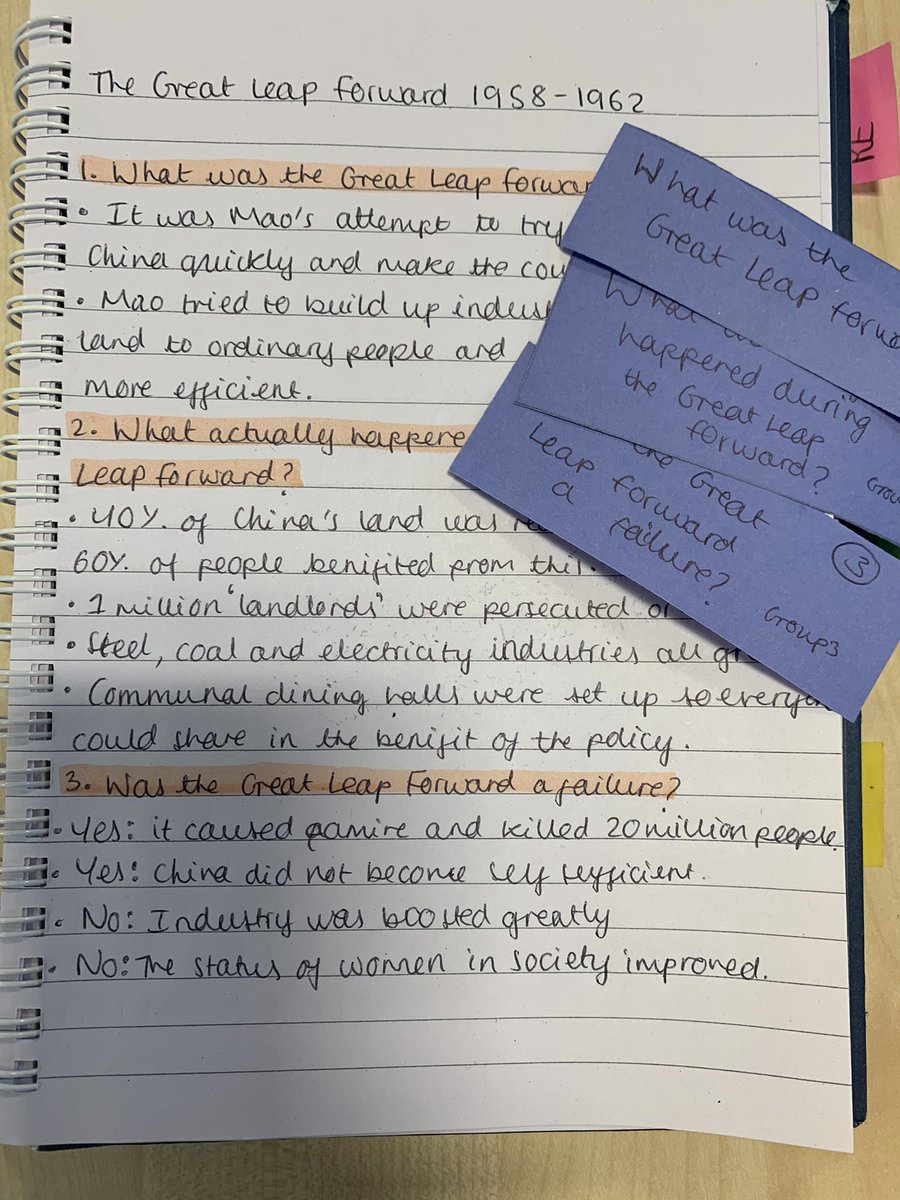 The Great Leap Forward 1958-1962
1. What was the Great Leap Forwar
• It was Mao's attempt to try
China quickly and make the cou
• Mao tried to build up indust
land to ordinary people and
more efficient.
2. What actually happene
Leap Forward?
• 40%. of China's land was re
60%. of people benifited from this.
• 1 million 'landlords' were persecuted or
• Steel, coal and electricity industries all gr
• Communal dining halls were set up so everyon
could share in the benifit of the policy.
3. Was the Great Leap Forward a failure?
• Yes: it caused famine and killed 20 million people.
• Yes: China did not become self sufficient.
• No: Industry was boosted greatly
• No: The status of women in society improved.
What was the
Great Leap Forwa
What
happened during
the Great Leap
Forward?
Grou
the Great
Leap Forward
a failure?
3
Group 3
KE